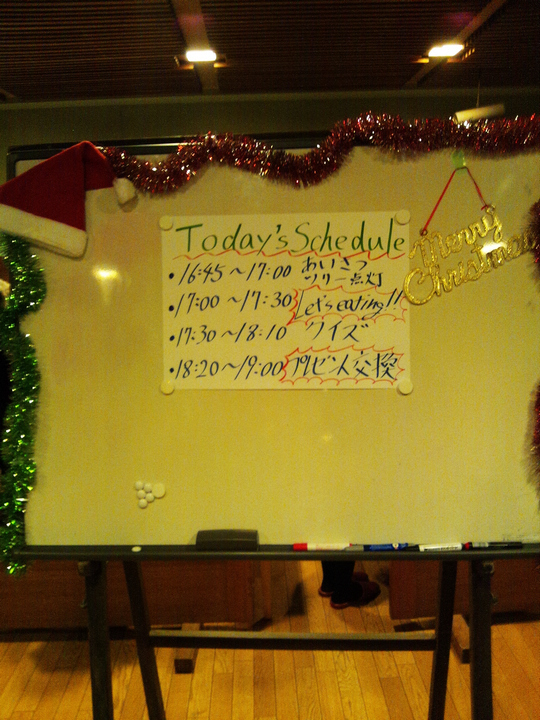 Today's Schedule
・16:45～17:00 あいさつ
ツリー点灯
・17:00～17:30 Let's eating!!
・17:30～18:10 クイズ
・18:20～19:00 プレゼント交換
Merry
Christmas